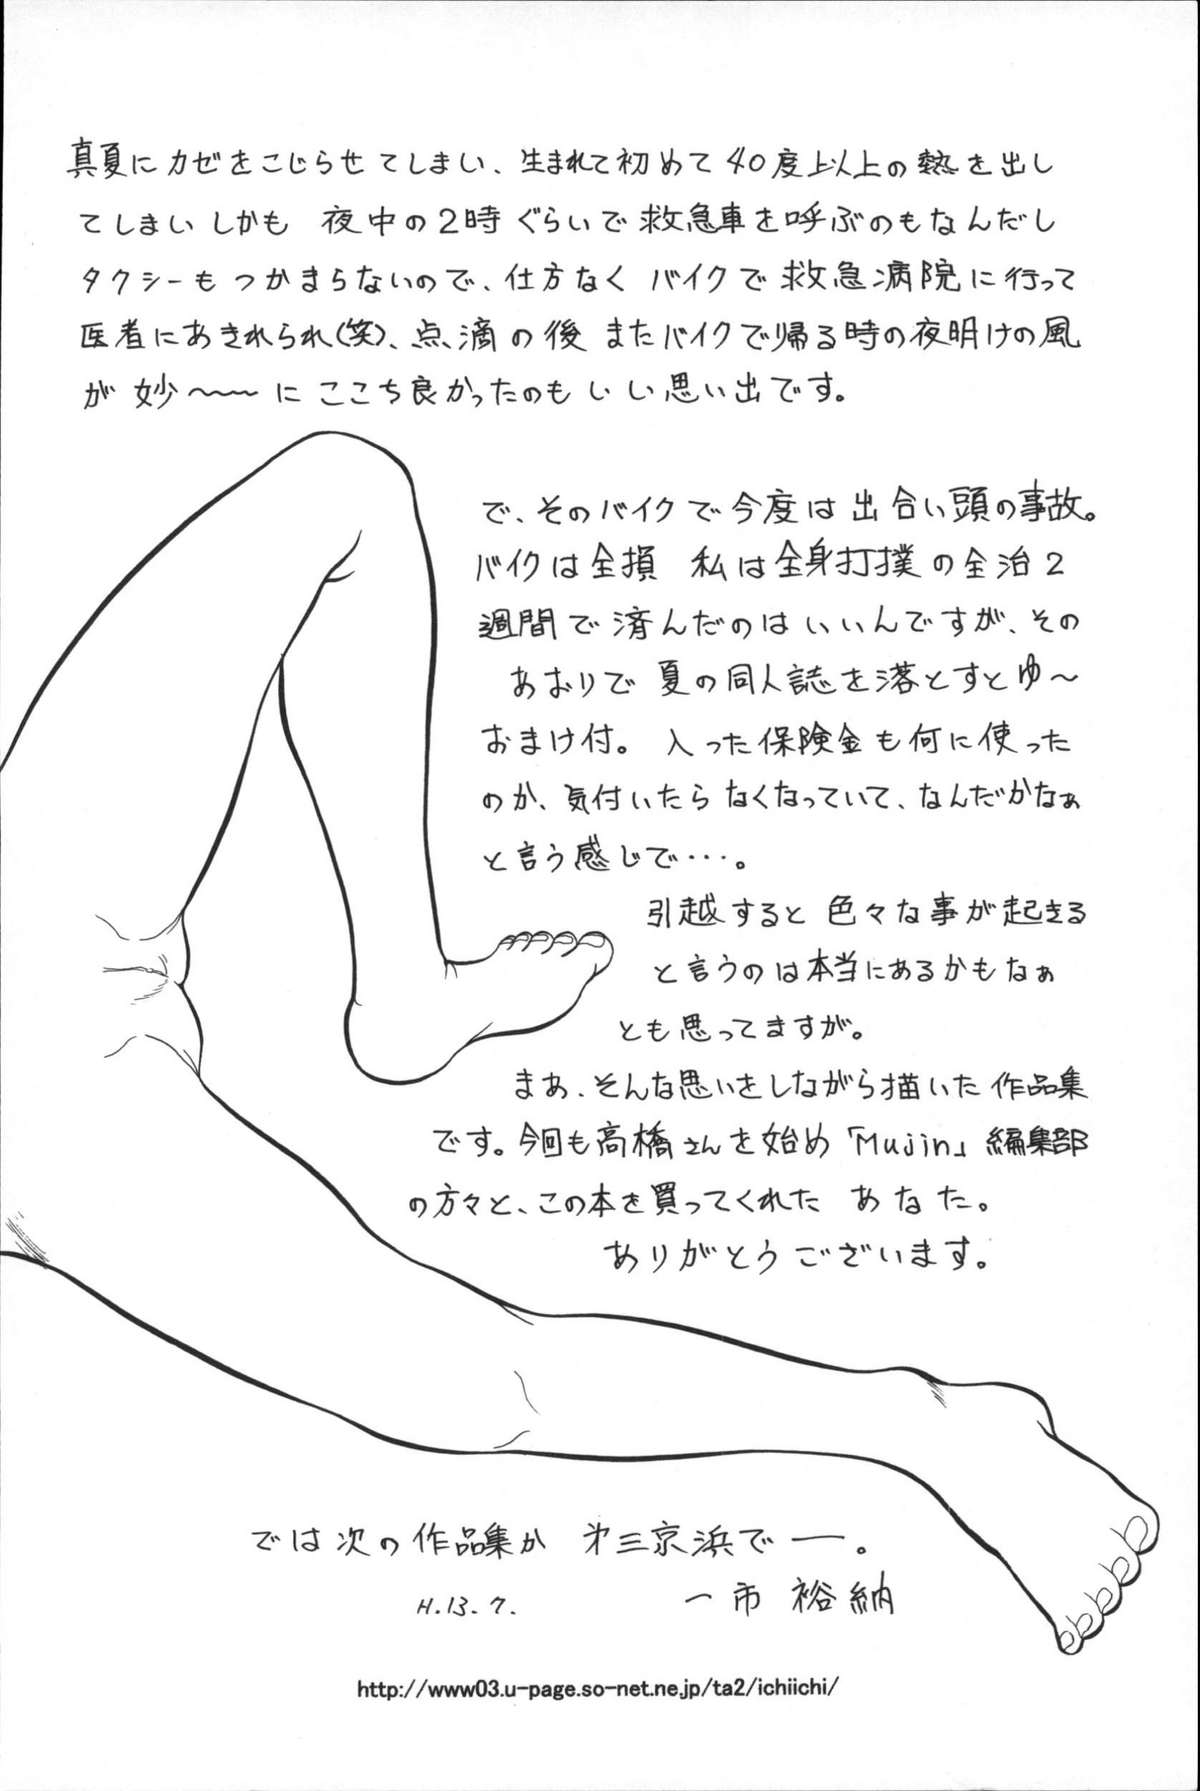 真夏にカゼをこじらせてしまい、生まれて初めて40度上以上の熱を出し
てしまいしかも 夜中の2時ぐらいで救急車を呼ぶのもなんだし
タクシーもつかまらないので、仕方なく バイクで救急病院に行って
医者にあきれられ(笑)、点滴の後 またバイクで帰る時の夜明けの風
が妙〜〜〜にここち良かったのもいい思い出です。
で、そのバイクで今度は出合い頭の事故。
バイクは全損 私は全身打撲の全治2
週間で済んだのはいいんですが、その
あおりで夏の同人誌を落とすとゆ〜
おまけ付。 入った保険金も何に使った
のか、気付いたらなくなっていて、なんだかなぁ
と言う感じで・・・。
引越すると色々な事が起きる
と言うのは本当にあるかもなぁ
とも思ってますが。
まあ、そんな思いをしながら描いた作品集
です。今回も高橋さんを始め「Mujin」編集部
の方々と、この本を買ってくれた あなた。
ありがとうございます。
では次の作品集か 才三京浜でー。
H.13.7. 一市 裕納
http://www03.u-page.so-net.ne.jp/ta2/ichiichi/